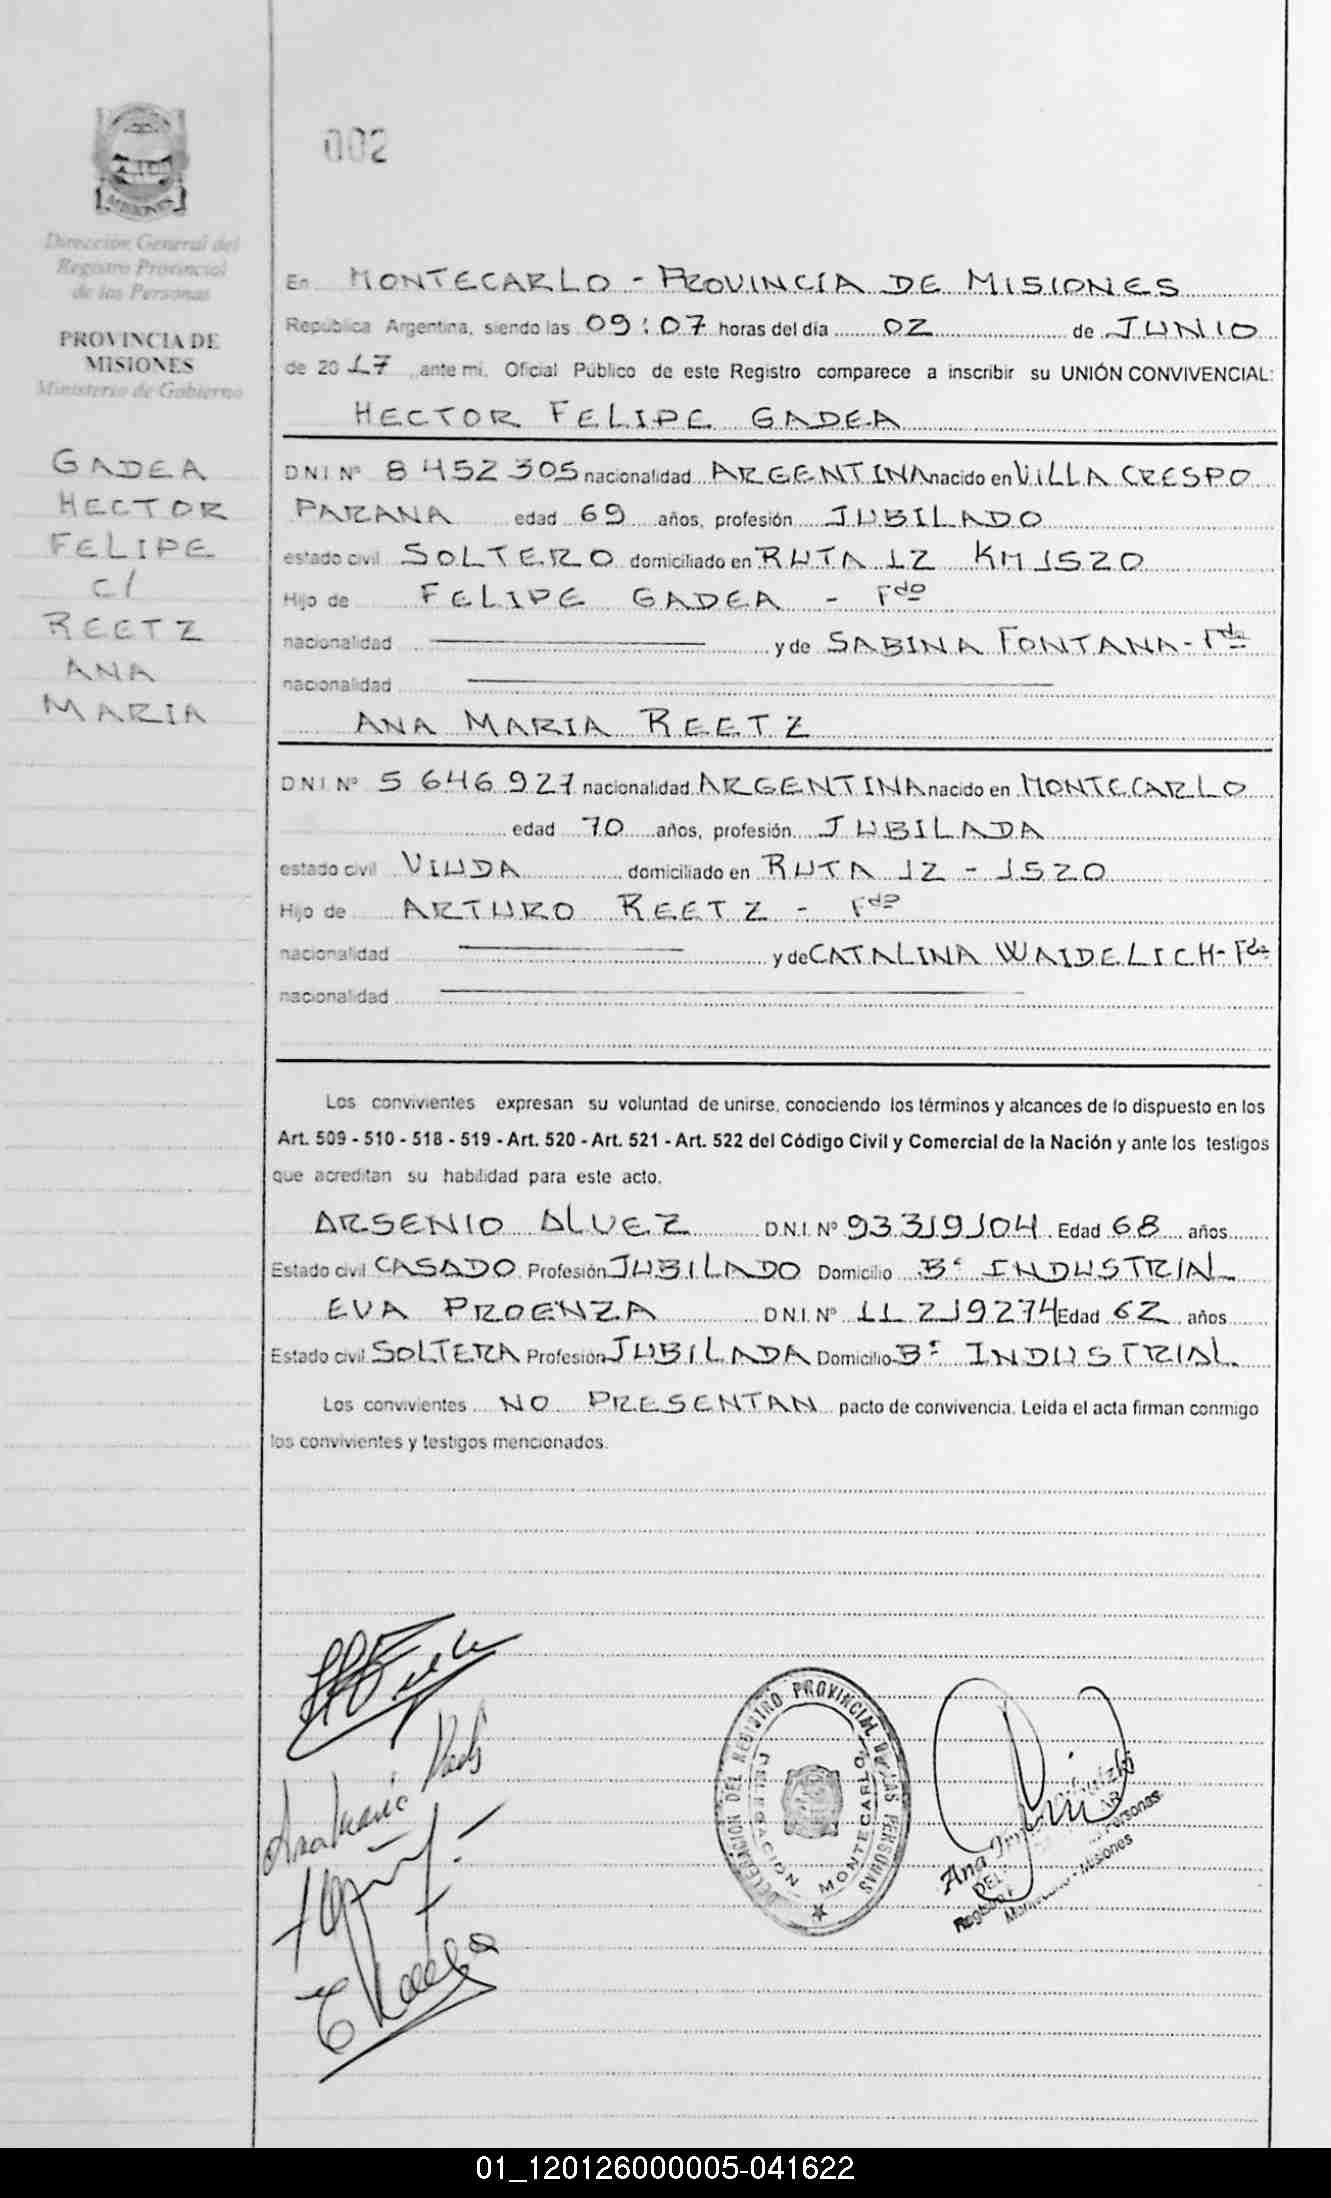 002
MISIONES
Dirección General del
Registro Provincial
de las Personas
PROVINCIA DE
MISIONES
Ministerio de Gobierno
GADEA
HECTOR
FELIPE
C/
REETZ
ANA
MARIA
En MONTECARLO - PROVINCIA DE MISIONES
República Argentina, siendo las 09:07 horas del día 02 de JUNIO
de 2017 ante mi, Oficial Público de este Registro comparece a inscribir su UNIÓN CONVIVENCIAL:
HECTOR FELIPE GADEA
D.N.I. Nº 8 452 305 nacionalidad ARGENTINA nacido en VILLA CRESPO
PARANA edad 69 años, profesión JUBILADO
estado civil SOLTERO domiciliado en RUTA 12 KM 1520
Hijo de FELIPE GADEA - Fdo
nacionalidad y de SABINA FONTANA - Fda
nacionalidad
ANA MARIA REETZ
D.N.I. Nº 5 646 927 nacionalidad ARGENTINA nacido en MONTECARLO
edad 70 años, profesión JUBILADA
estado civil VIUDA domiciliado en RUTA 12 - 1520
Hijo de ARTURO REETZ - Fdo
nacionalidad y de CATALINA WAIDELICH - Fda
nacionalidad
Los convivientes expresan su voluntad de unirse, conociendo los términos y alcances de lo dispuesto en los
Art. 509 - 510 - 518 - 519 - Art. 520 - Art. 521 - Art. 522 del Código Civil y Comercial de la Nación y ante los testigos
que acreditan su habilidad para este acto.
ARSENIO ALVEZ D.N.I. Nº 93319104 Edad 68 años
Estado civil CASADO Profesión JUBILADO Domicilio Bº INDUSTRIAL
EVA PROENZA D.N.I. Nº 11 219274 Edad 62 años
Estado civil SOLTERA Profesión JUBILADA Domicilio Bº INDUSTRIAL
Los convivientes NO PRESENTAN pacto de convivencia. Leída el acta firman conmigo
los convivientes y testigos mencionados.
DELEGACION DEL REGISTRO PROVINCIAL DE LAS PERSONAS
DELEGACION MONTECARLO
Ana Maria
Ana
Personas
Misiones
01_120126000005-041622